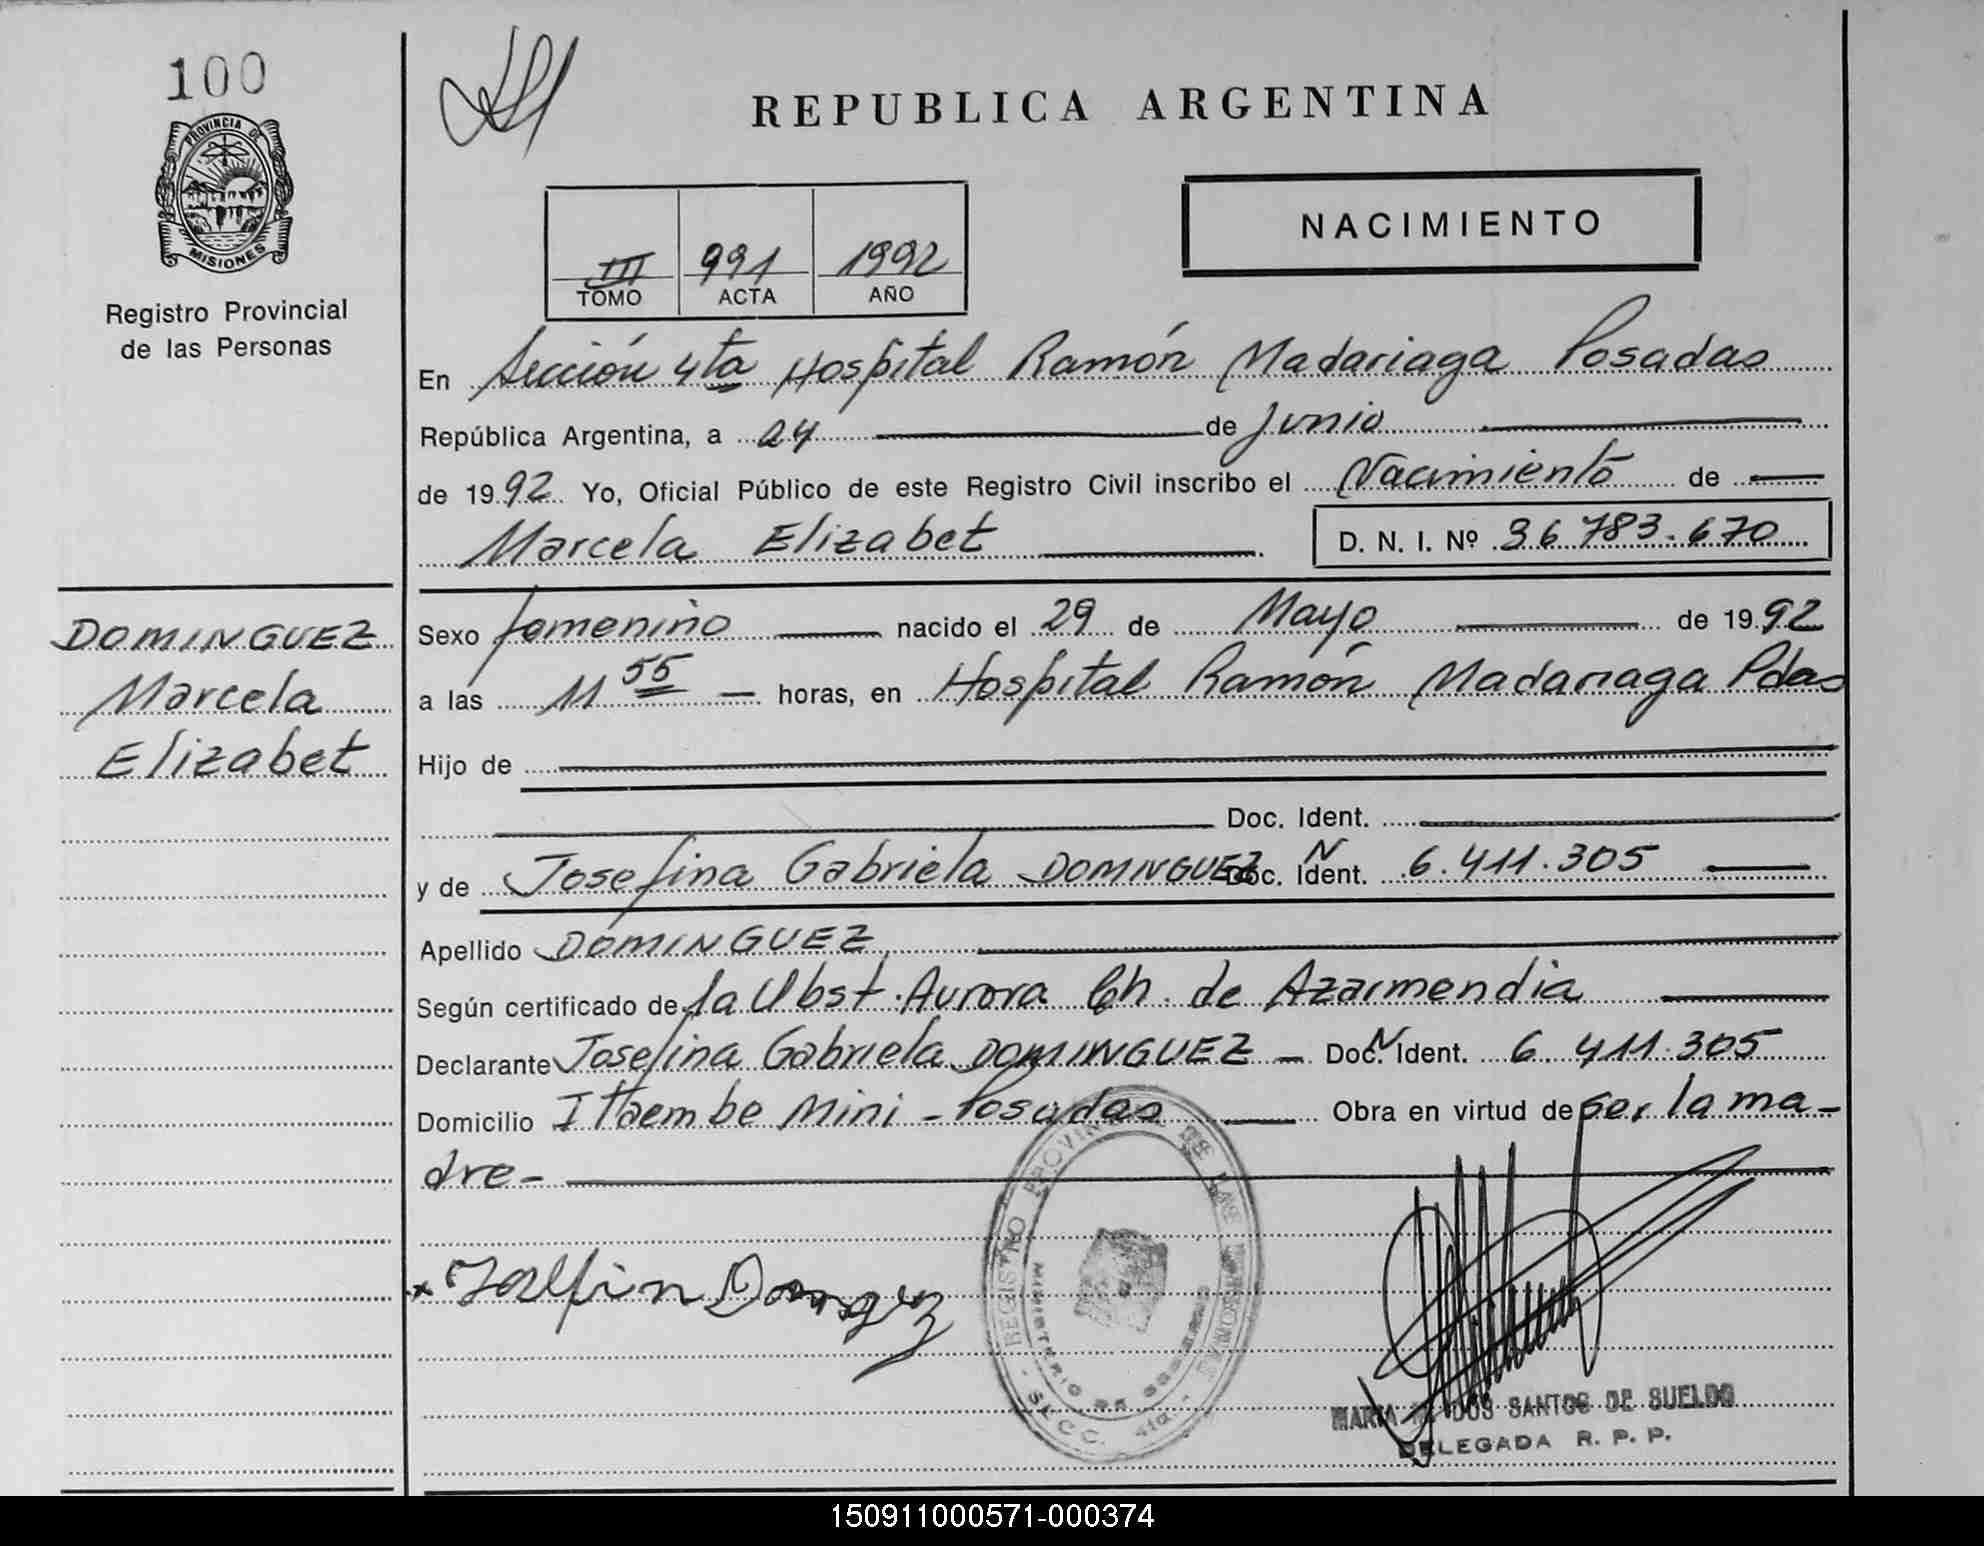 100
PROVINCIA DE
MISIONES
Registro Provincial
de las Personas
REPUBLICA ARGENTINA
III 991 1992
TOMO ACTA AÑO
NACIMIENTO
En Sección 4ta Hospital Ramón Madariaga Posadas
República Argentina, a 24 de Junio
de 1992 Yo, Oficial Público de este Registro Civil inscribo el Nacimiento de
Marcela Elizabet D. N. I. Nº 36.783.670
DOMINGUEZ
Marcela
Elizabet
Sexo femenino nacido el 29 de Mayo de 1992
a las 11 55 horas, en Hospital Ramón Madariaga Pdas
Hijo de
Doc. Ident.
y de Josefina Gabriela DOMINGUEZ Doc. N Ident. 6.411.305
Apellido DOMINGUEZ
Según certificado de la Obst. Aurora Ch. de Azarmendia
Declarante Josefina Gabriela DOMINGUEZ - Doc. N Ident. 6.411.305
Domicilio Itaembe Mini - Posadas Obra en virtud de ser la ma-
dre-
REGISTRO PROVINCIAL DE LAS PERSONAS
MINISTERIO DE GOBIERNO
- SECC. 4ta -
MARIA DOS SANTOS DE SUELDO
DELEGADA R. P. P.
150911000571-000374